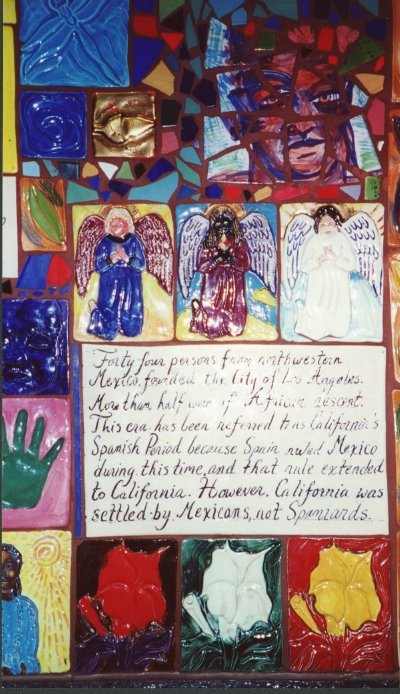 Forty four persons from northwestern
Mexico, founded the City of Los Angeles.
More than half were of African descent.
This era has been referred to as California's
Spanish Period because Spain ruled Mexico
during this time, and that rule extended
to California. However, California was
settled by Mexicans, not Spaniards.